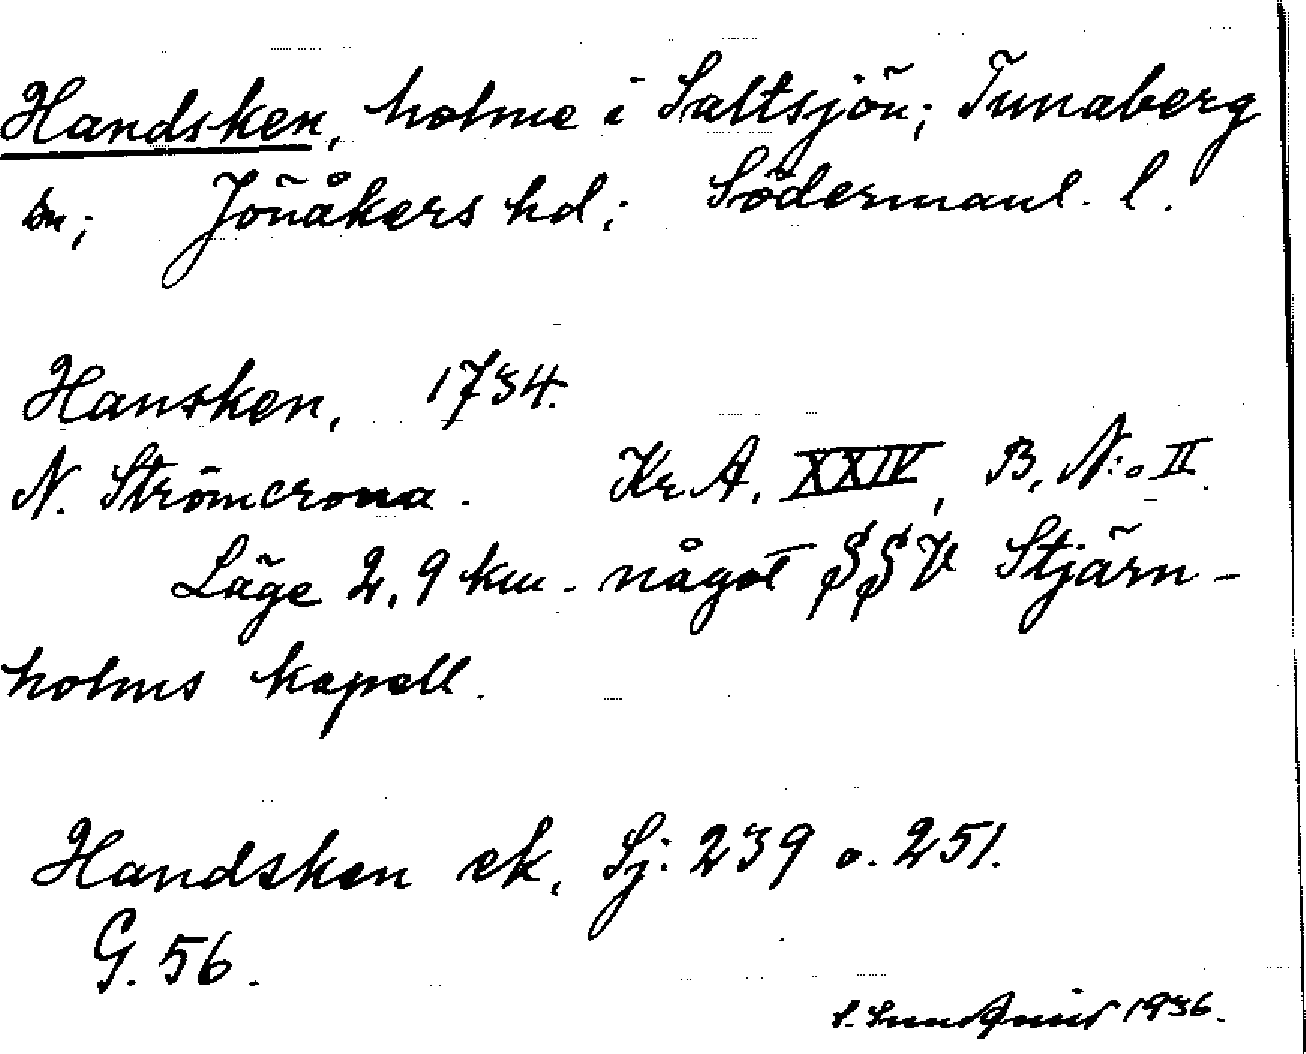 Handsken, holme i Saltsjön; Tunaberg
sn; Jönåkers hd; Södermanl. l.
Hansken, 1734.
N. Strömcrona. Kr. A. XXIV, B, N:o II.
Läge 2,9 km. något SSV Stjärn-
holms kapell.
Handsken ek. Sj: 239 o. 251.
G. 56.
S. 1936.